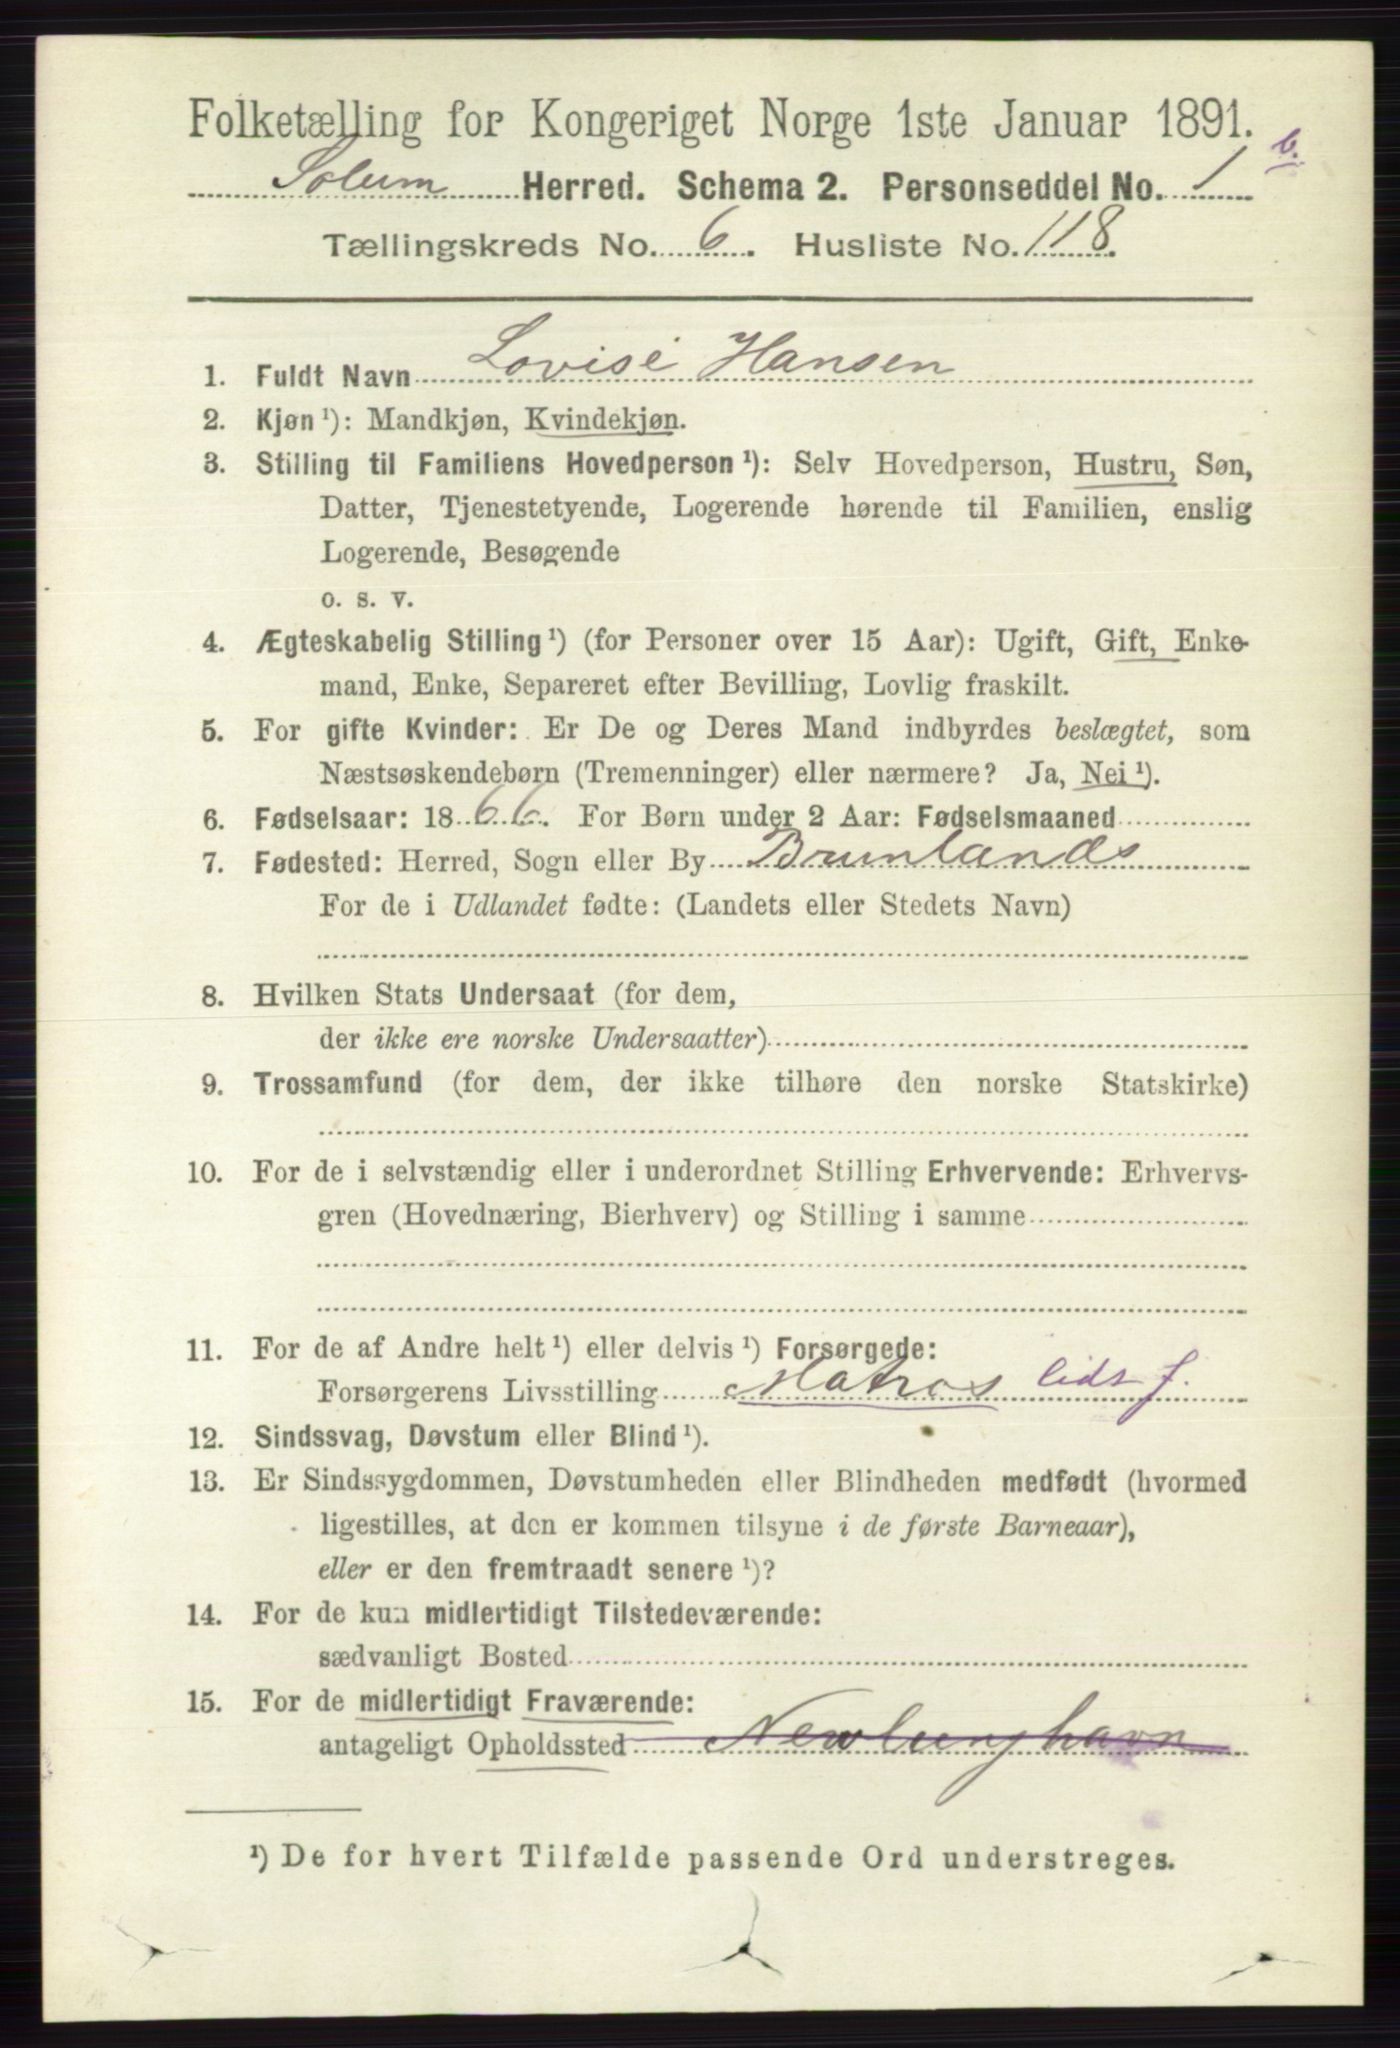 Folketælling for Kongeriget Norge 1ste Januar 1891.
Solum Herred. Schema 2. Personseddel No. 1 b.
Tællingskreds No. 6. Husliste No. 118.
1. Fuldt Navn Lovise Hansen
2. Kjøn¹): Mandkjøn, Kvindekjøn.
3. Stilling til Familiens Hovedperson¹): Selv Hovedperson, Hustru, Søn,
Datter, Tjenestetyende, Logerende hørende til Familien, enslig
Logerende, Besøgende
o. s. v.
4. Ægteskabelig Stilling¹) (for Personer over 15 Aar): Ugift, Gift, Enke-
mand, Enke, Separeret efter Bevilling, Lovlig fraskilt.
5. For gifte Kvinder: Er De og Deres Mand indbyrdes beslægtet, som
Næstsøskendebørn (Tremenninger) eller nærmere? Ja, Nei¹).
6. Fødselsaar: 1866. For Børn under 2 Aar: Fødselsmaaned
7. Fødested: Herred, Sogn eller By Brunlands
For de i Udlandet fødte: (Landets eller Stedets Navn)
8. Hvilken Stats Undersaat (for dem,
der ikke ere norske Undersaatter)
9. Trossamfund (for dem, der ikke tilhøre den norske Statskirke)
10. For de i selvstændig eller i underordnet Stilling Erhvervende: Erhvervs-
gren (Hovednæring, Bierhverv) og Stilling i samme
11. For de af Andre helt¹) eller delvis¹) Forsørgede:
Forsørgerens Livsstilling Matros f.
12. Sindssvag, Døvstum eller Blind¹).
13. Er Sindssygdommen, Døvstumheden eller Blindheden medfødt (hvormed
ligestilles, at den er kommen tilsyne i de første Barneaar),
eller er den fremtraadt senere¹)?
14. For de kun midlertidigt Tilstedeværende:
sædvanligt Bosted
15. For de midlertidigt Fraværende:
antageligt Opholdssted
¹) De for hvert Tilfælde passende Ord understreges.